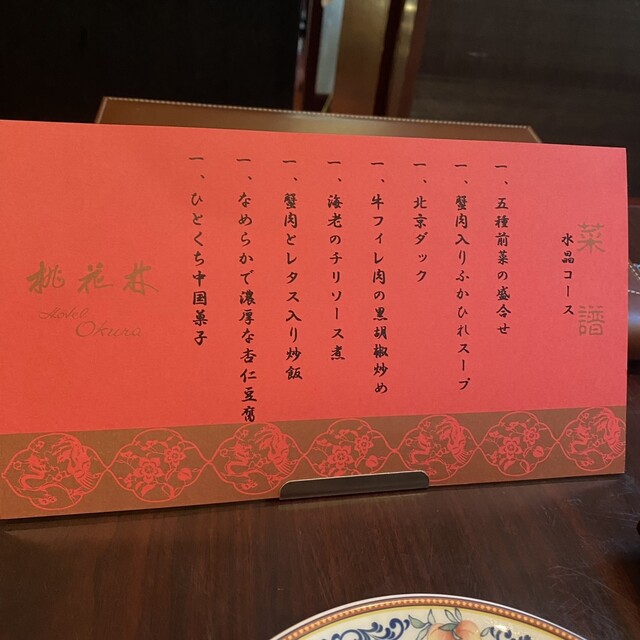 菜譜
水晶コース
一、五種前菜の盛合せ
一、蟹肉入りふかひれスープ
一、北京ダック
一、牛フィレ肉の黒胡椒炒め
一、海老のチリソース煮
一、蟹肉とレタス入り炒飯
一、なめらかで濃厚な杏仁豆腐
一、ひとくち中国菓子
桃花林
Hotel
Okura